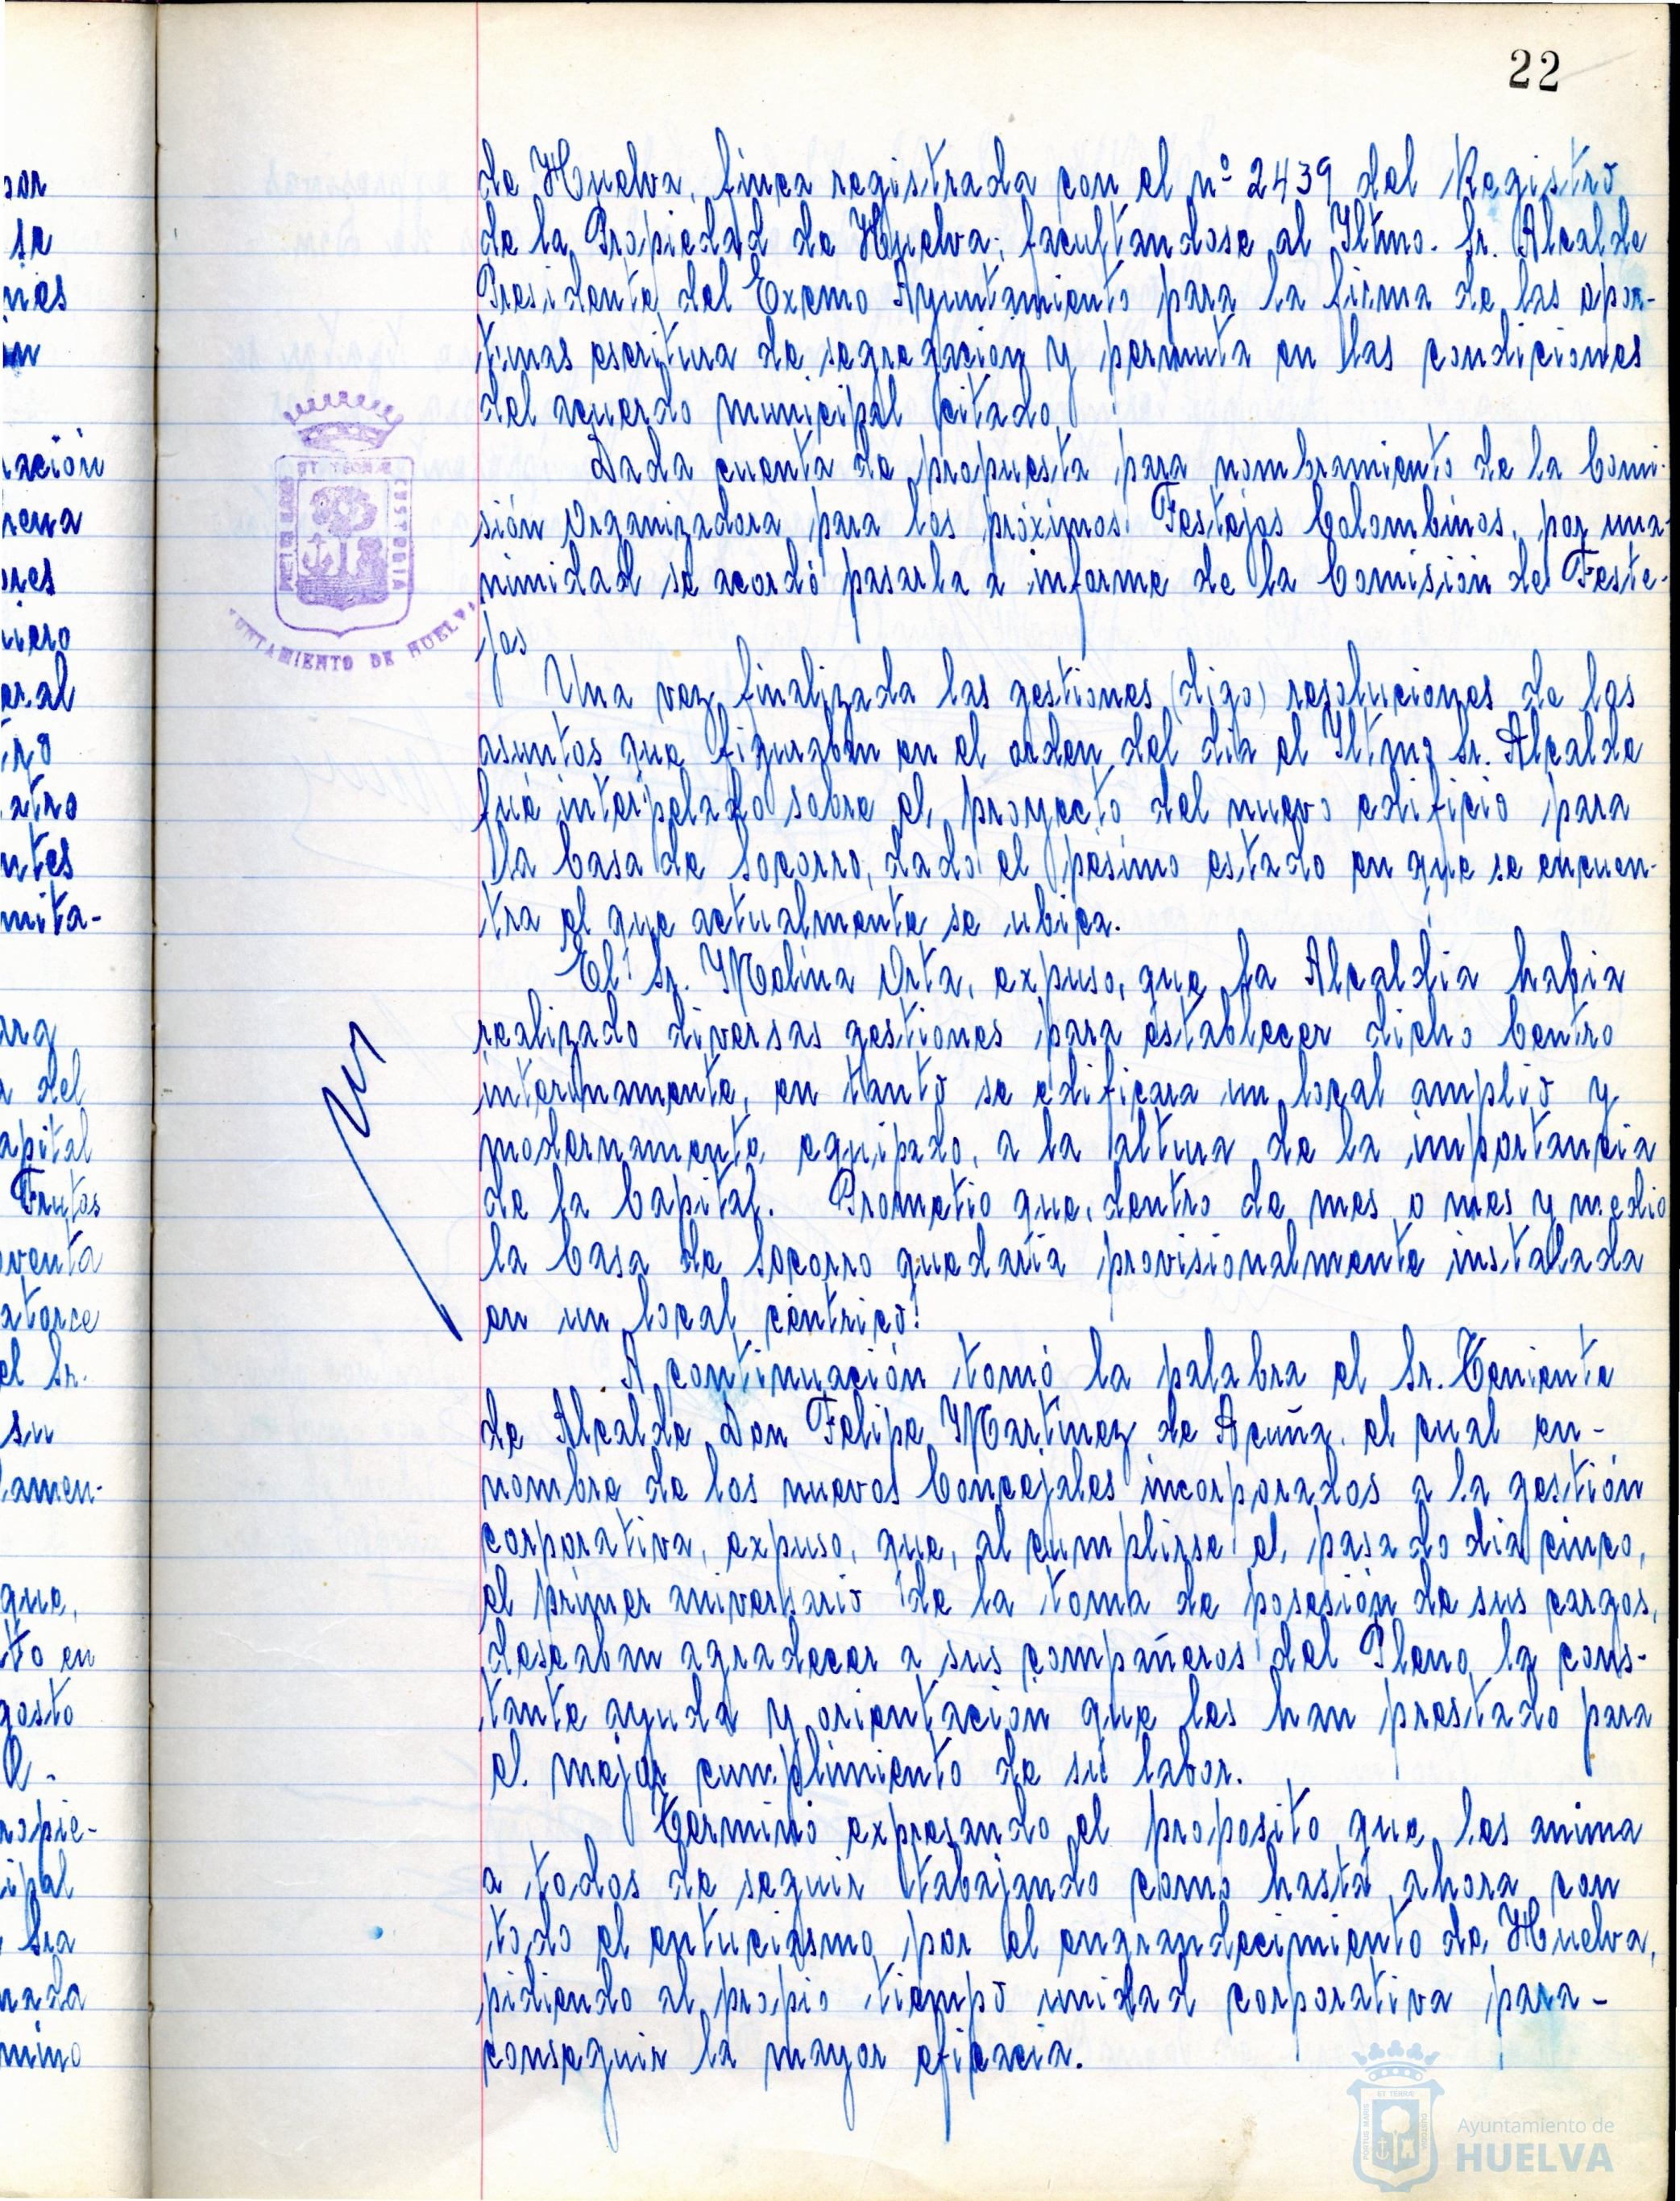 22
de Huelva, finca registrada con el nº 2439 del Registro
de la Propiedad de Huelva; facultandose al Iltmo. Sr. Alcalde
Presidente del Excmo Ayuntamiento para la firma de las opor-
tunas escritura de segregación y permuta en las condiciones
del acuerdo municipal citado
Dada cuenta de propuesta para nombramiento de la Comi-
sión Organizadora para los próximos Festejos Colombinos, por una-
nimidad se acordó pasarla a informe de la Comisión de Feste-
jos
Una vez finalizada las gestiones (digo) resoluciones de los
asuntos que figuraban en el orden del dia el Iltmo Sr. Alcalde
fué interpelado sobre el proyecto del nuevo edificio para
la Casa de Socorro, dado el pésimo estado en que se encuen-
tra el que actualmente se ubica.
El Sr. Molina Orta, expuso, que la Alcaldia habia
realizado diversas gestiones para establecer dicho Centro
interinamente, en tanto se edificara un local amplio y
modernamente equipado, a la altura de la importancia
de la Capital. Prometio que, dentro de mes o mes y medio
la Casa de Socorro quedaría provisionalmente instalada
en un local céntrico.
A continuación tomó la palabra el Sr. Teniente
de Alcalde Don Felipe Martínez de Acuña, el cual en-
nombre de los nuevos Concejales incorporados a la gestión
corporativa, expuso, que, al cumplirse el pasado dia cinco,
el primer aniversario de la toma de posesión de sus cargos,
deseaban agradecer a sus compañeros del Pleno la cons-
tante ayuda y orientación que les han prestado para
el mejor cumplimiento de su labor.
Terminó expresando el proposito que les anima
a todos de seguir tabajando como hasta ahora con
todo el entuciasmo por el engrandecimiento de Huelva,
pidiendo al propio tiempo unidad corporativa para-
conseguir la mayor eficacia.
ET TERRAE
PORTUS MARIS
CUSTODIA
UNTAMIENTO DE HUELVA
sor
se
nes
ación
rena
ores
uero
eral
atro
ntes
mita-
a del
apital
Frutas
venta
atorce
el Sr.
su
lamen-
que,
to en
gosto
ropie-
ipal
Sra
nada
mino
Ayuntamiento de
HUELVA